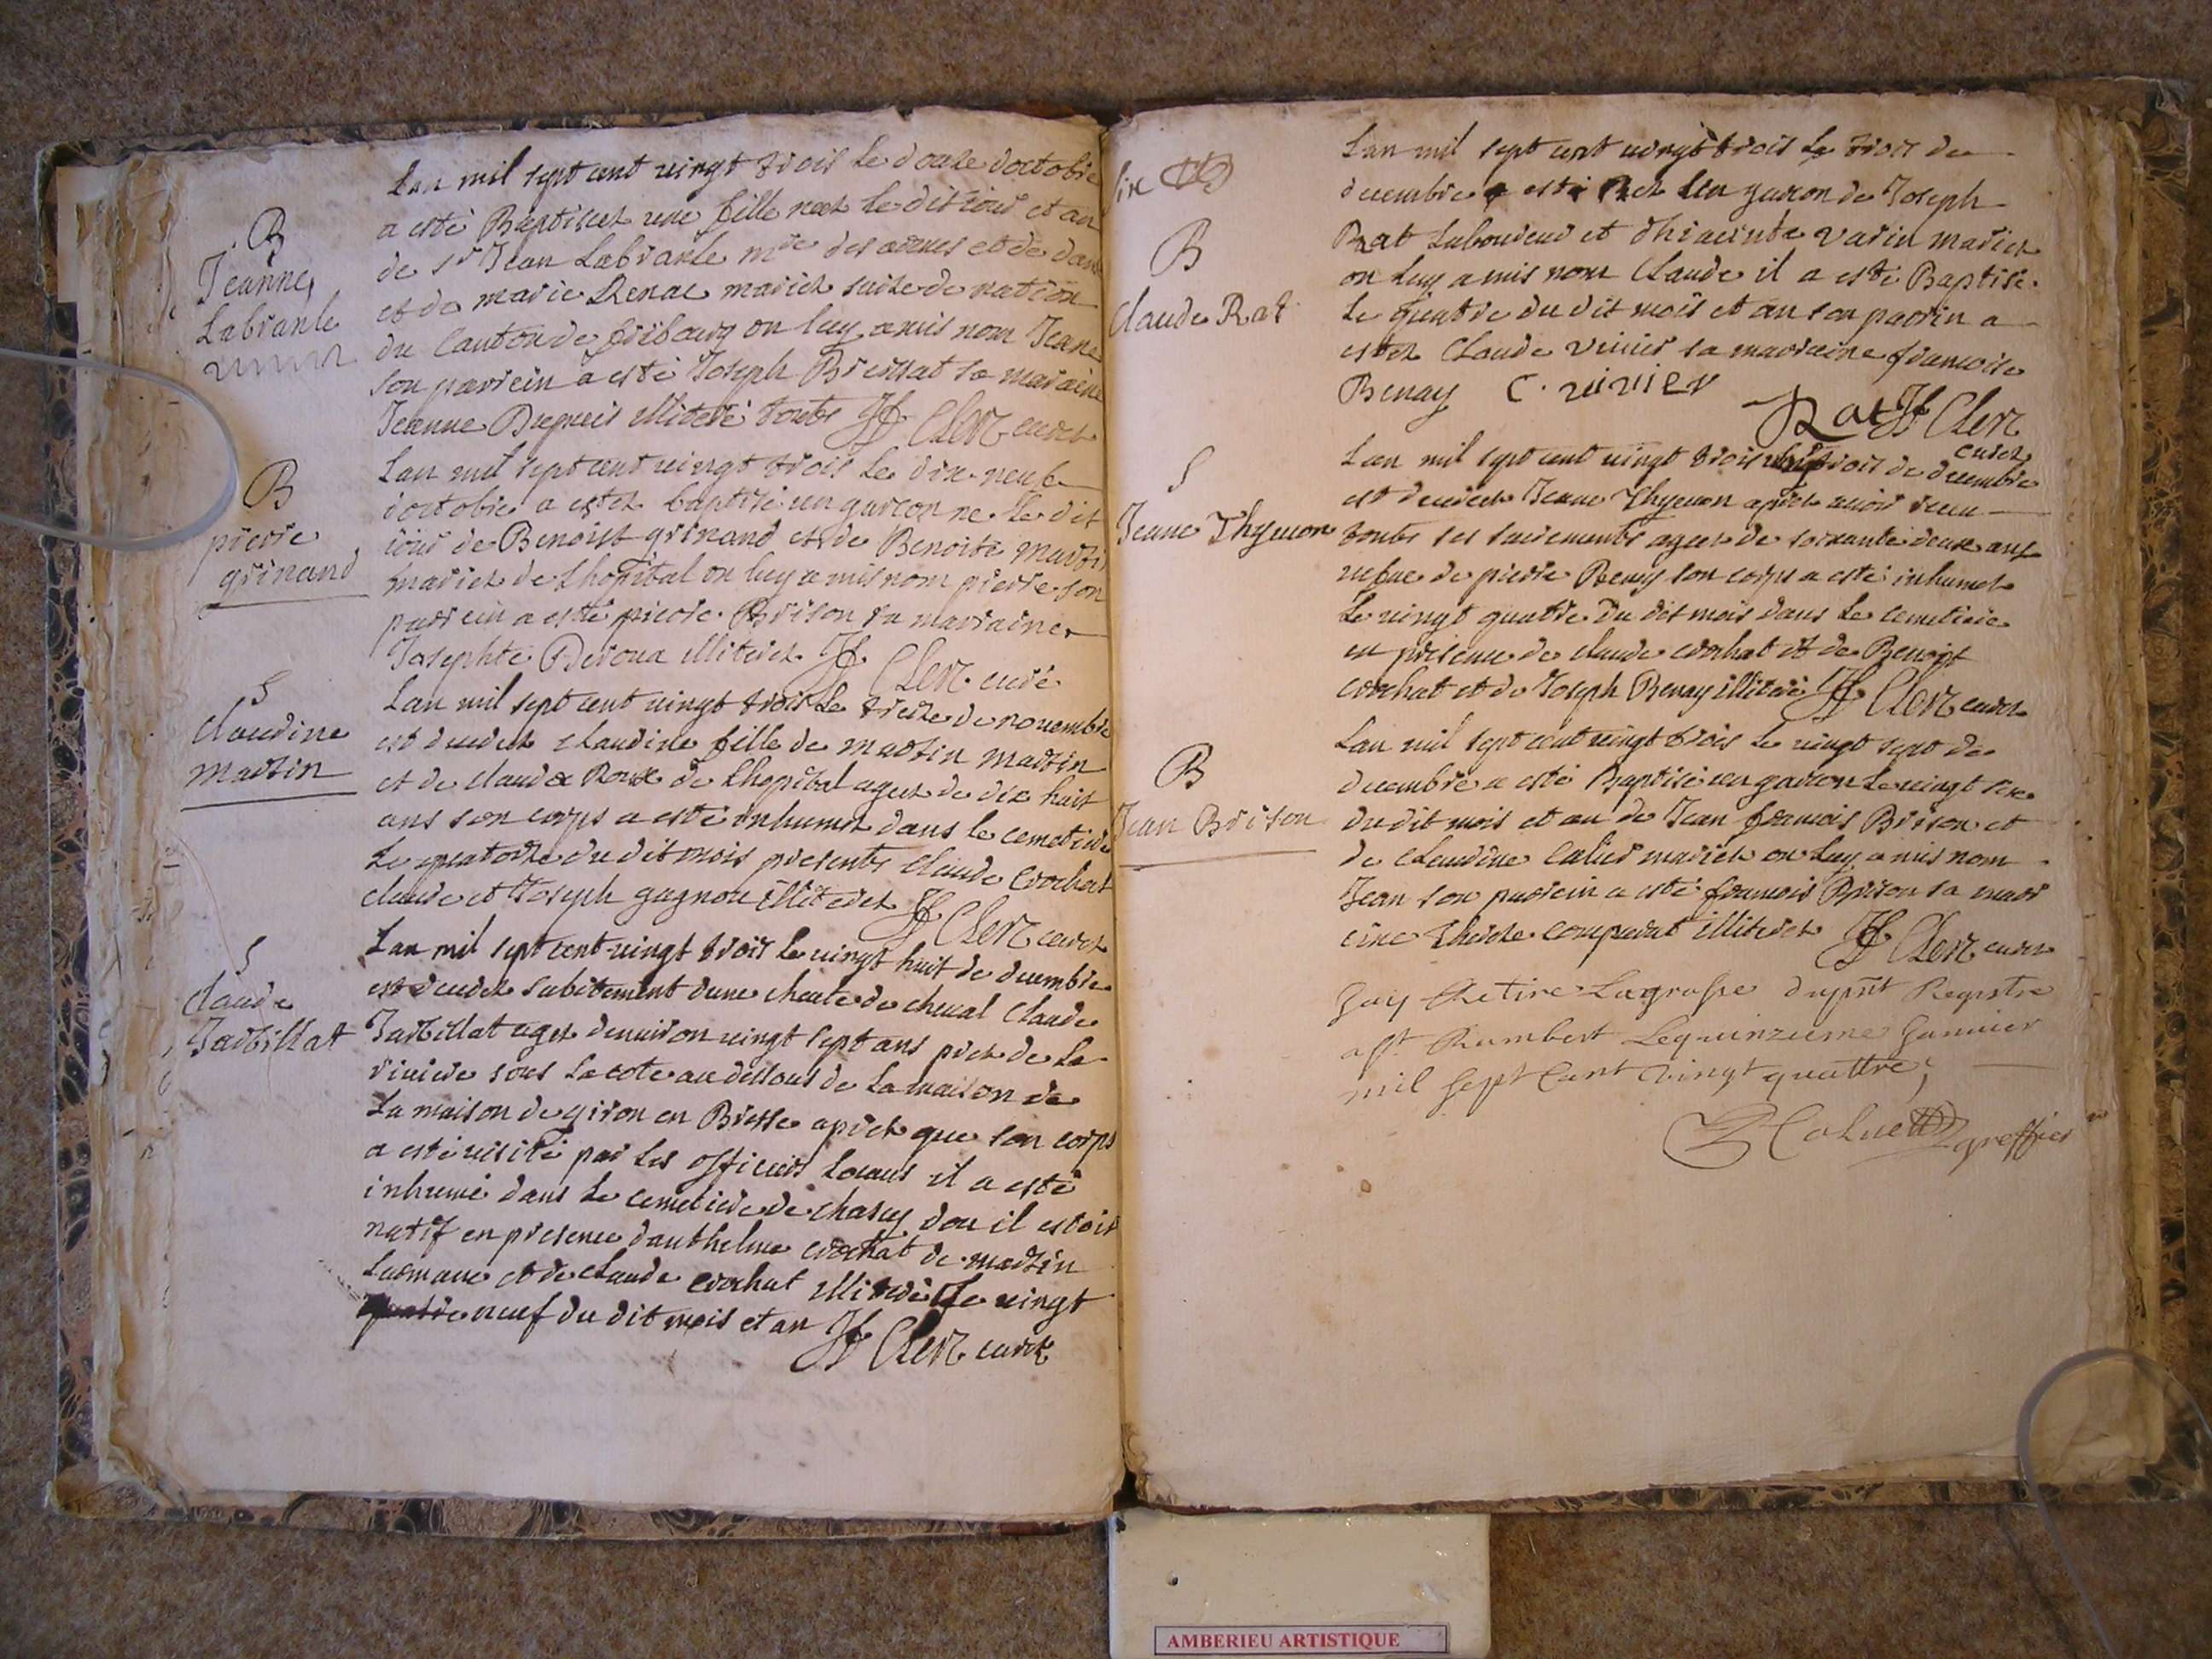 B
Jeanne
Labranle
Lan mil sept cent vingt trois le douze doctobre
a esté Baptiset une fille neet le dit iour et an
de Sr Jean Labranle mre des armes et de danse
et de marie Renae mariet suise de nation
du Canton de fribourg on luy a mis nom Jeane
son parrein a esté Joseph Bressat sa maraine
Jeanne Dupuis illiteré touts JF Clerz curet
B
pierre
grinand
Lan mil sept cent vingt trois le dix-neufe
doctobre a estet baptisé un garcon ne le dit
iour de Benoist grinand et de Benoite martin
mariet de Lhopital on luy a mis nom pierre son
parrein a esté pierre Brison sa marraine
Josephte Deroua illiteret JF Clerz curé
S
Claudine
martin
Lan mil sept cent vingt trois le treize de novembre
est decedet Claudine fille de martin martin
et de clauda Roux de Lhopital aget de dix huit
ans son corps a esté inhumet dans le cemetiere
Le quatorze du dit mois presents Claude Crochat
claude et Joseph gagnou illiteret JF Clerz curet
S
Claude
Jarbillat
Lan mil sept cent vingt trois le vingt huit de decembre
est decedet subitement dune cheute de cheval Claude
Jarbillat aget denviron vingt sept ans pret de la
riviere sous la cote au dessous de La maison de
La maison de giron en Bresse apret que son corps
a esté visité par les officiers Locaus il a esté
inhumé dans le cemetiere de chasey dou il estoit
natif en presence danthelme crochat de martin
Larmane et de Claude crochat illiteré Le vingt
quatre neuf du dit mois et an JF Clerz curet
six
B
Claude Rat
Lan mil sept cent vingt trois le trois de
decembre a esté net Un garcon de Joseph
Rat Laboureur et dhiacinte varin mariet
on luy a mis nom Claude il a esté Baptisé
Le quatre du dit mois et an son parrin a
estet Claude vivier sa marraine francoise
Benay C. vivier
Rat JF Clerz
curet
S
Jeane Thyvuon
Lan mil sept cent vingt trois vingt trois de decembre
est decedet Jeane Thyvuon apret avoir receu
touts ses sacrements aget de soixante deux ans
vefve de pierre Benay son corps a esté inhumet
Le vingt quatre Du dit mois dans Le cemetiere
en presence de claude crochat et de Benoist
crochat et de Joseph Benay illiteré JF Clerz curet
B
Jean Brison
Lan mil sept cent vingt trois le vingt sept de
decembre a esté Baptisé un garcon le vingt sixe
du dit mois et an de Jean francois Brison et
de Claudine Calier mariet on luy a mis nom
Jean son parrein a esté francois Brison sa marr
eine Therese comparat illiteret JF Clerz curet
Jay Retiré Lagrosse dupnt Registre
a st Rambert Lequinzieme Janvier
mil sept Cent vingt quattre,
greffier
AMBERIEU ARTISTIQUE